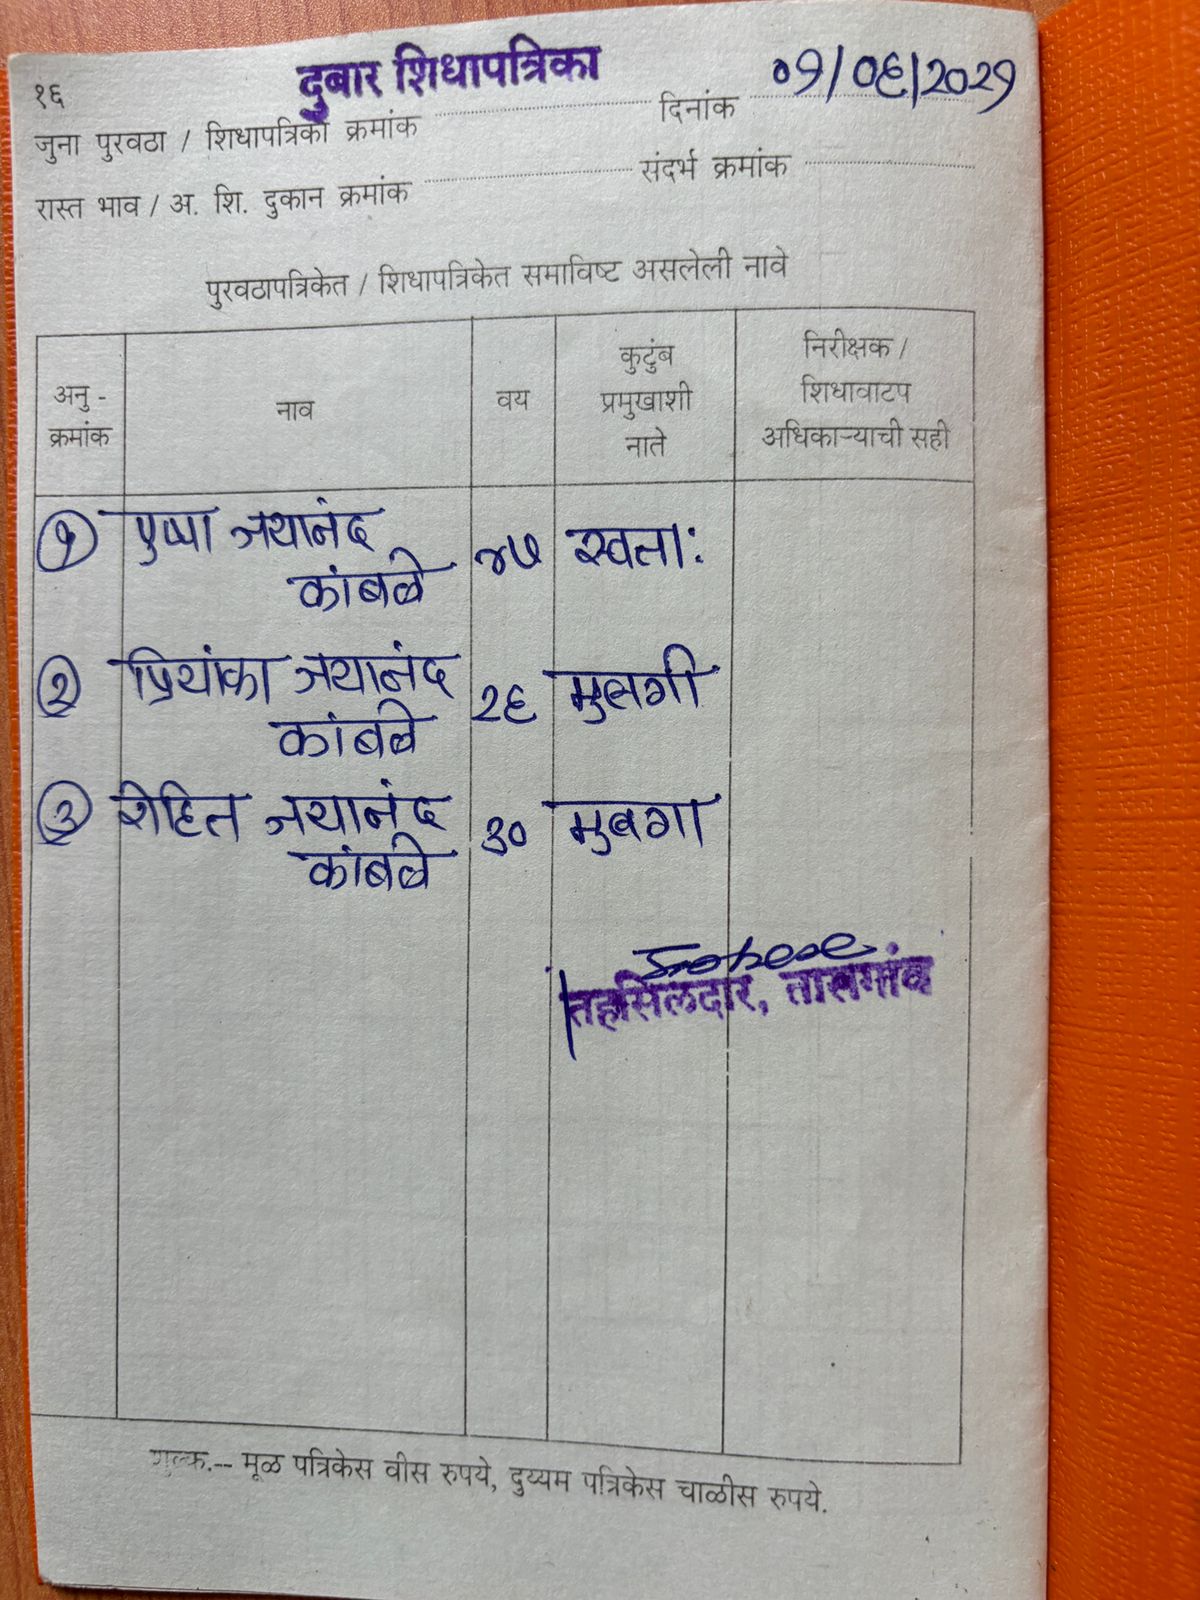 १६
दुबार शिधापत्रिका
जुना पुरवठा / शिधापत्रिका क्रमांक दिनांक ०१/०६/२०२१
रास्त भाव / अ. शि. दुकान क्रमांक संदर्भ क्रमांक
पुरवठापत्रिकेत / शिधापत्रिकेत समाविष्ट असलेली नावे
अनु - क्रमांक नाव वय कुटुंब प्रमुखाशी नाते निरीक्षक / शिधावाटप अधिकाऱ्याची सही
१ पुष्पा जयानंद कांबळे ४७ स्वताः
२ प्रियांका जयानंद कांबळे २६ मुलगी
३ रोहित जयानंद कांबळे ३० मुलगा
तहसिलदार, तासगांव
शुल्क.-- मूळ पत्रिकेस वीस रुपये, दुय्यम पत्रिकेस चाळीस रुपये.